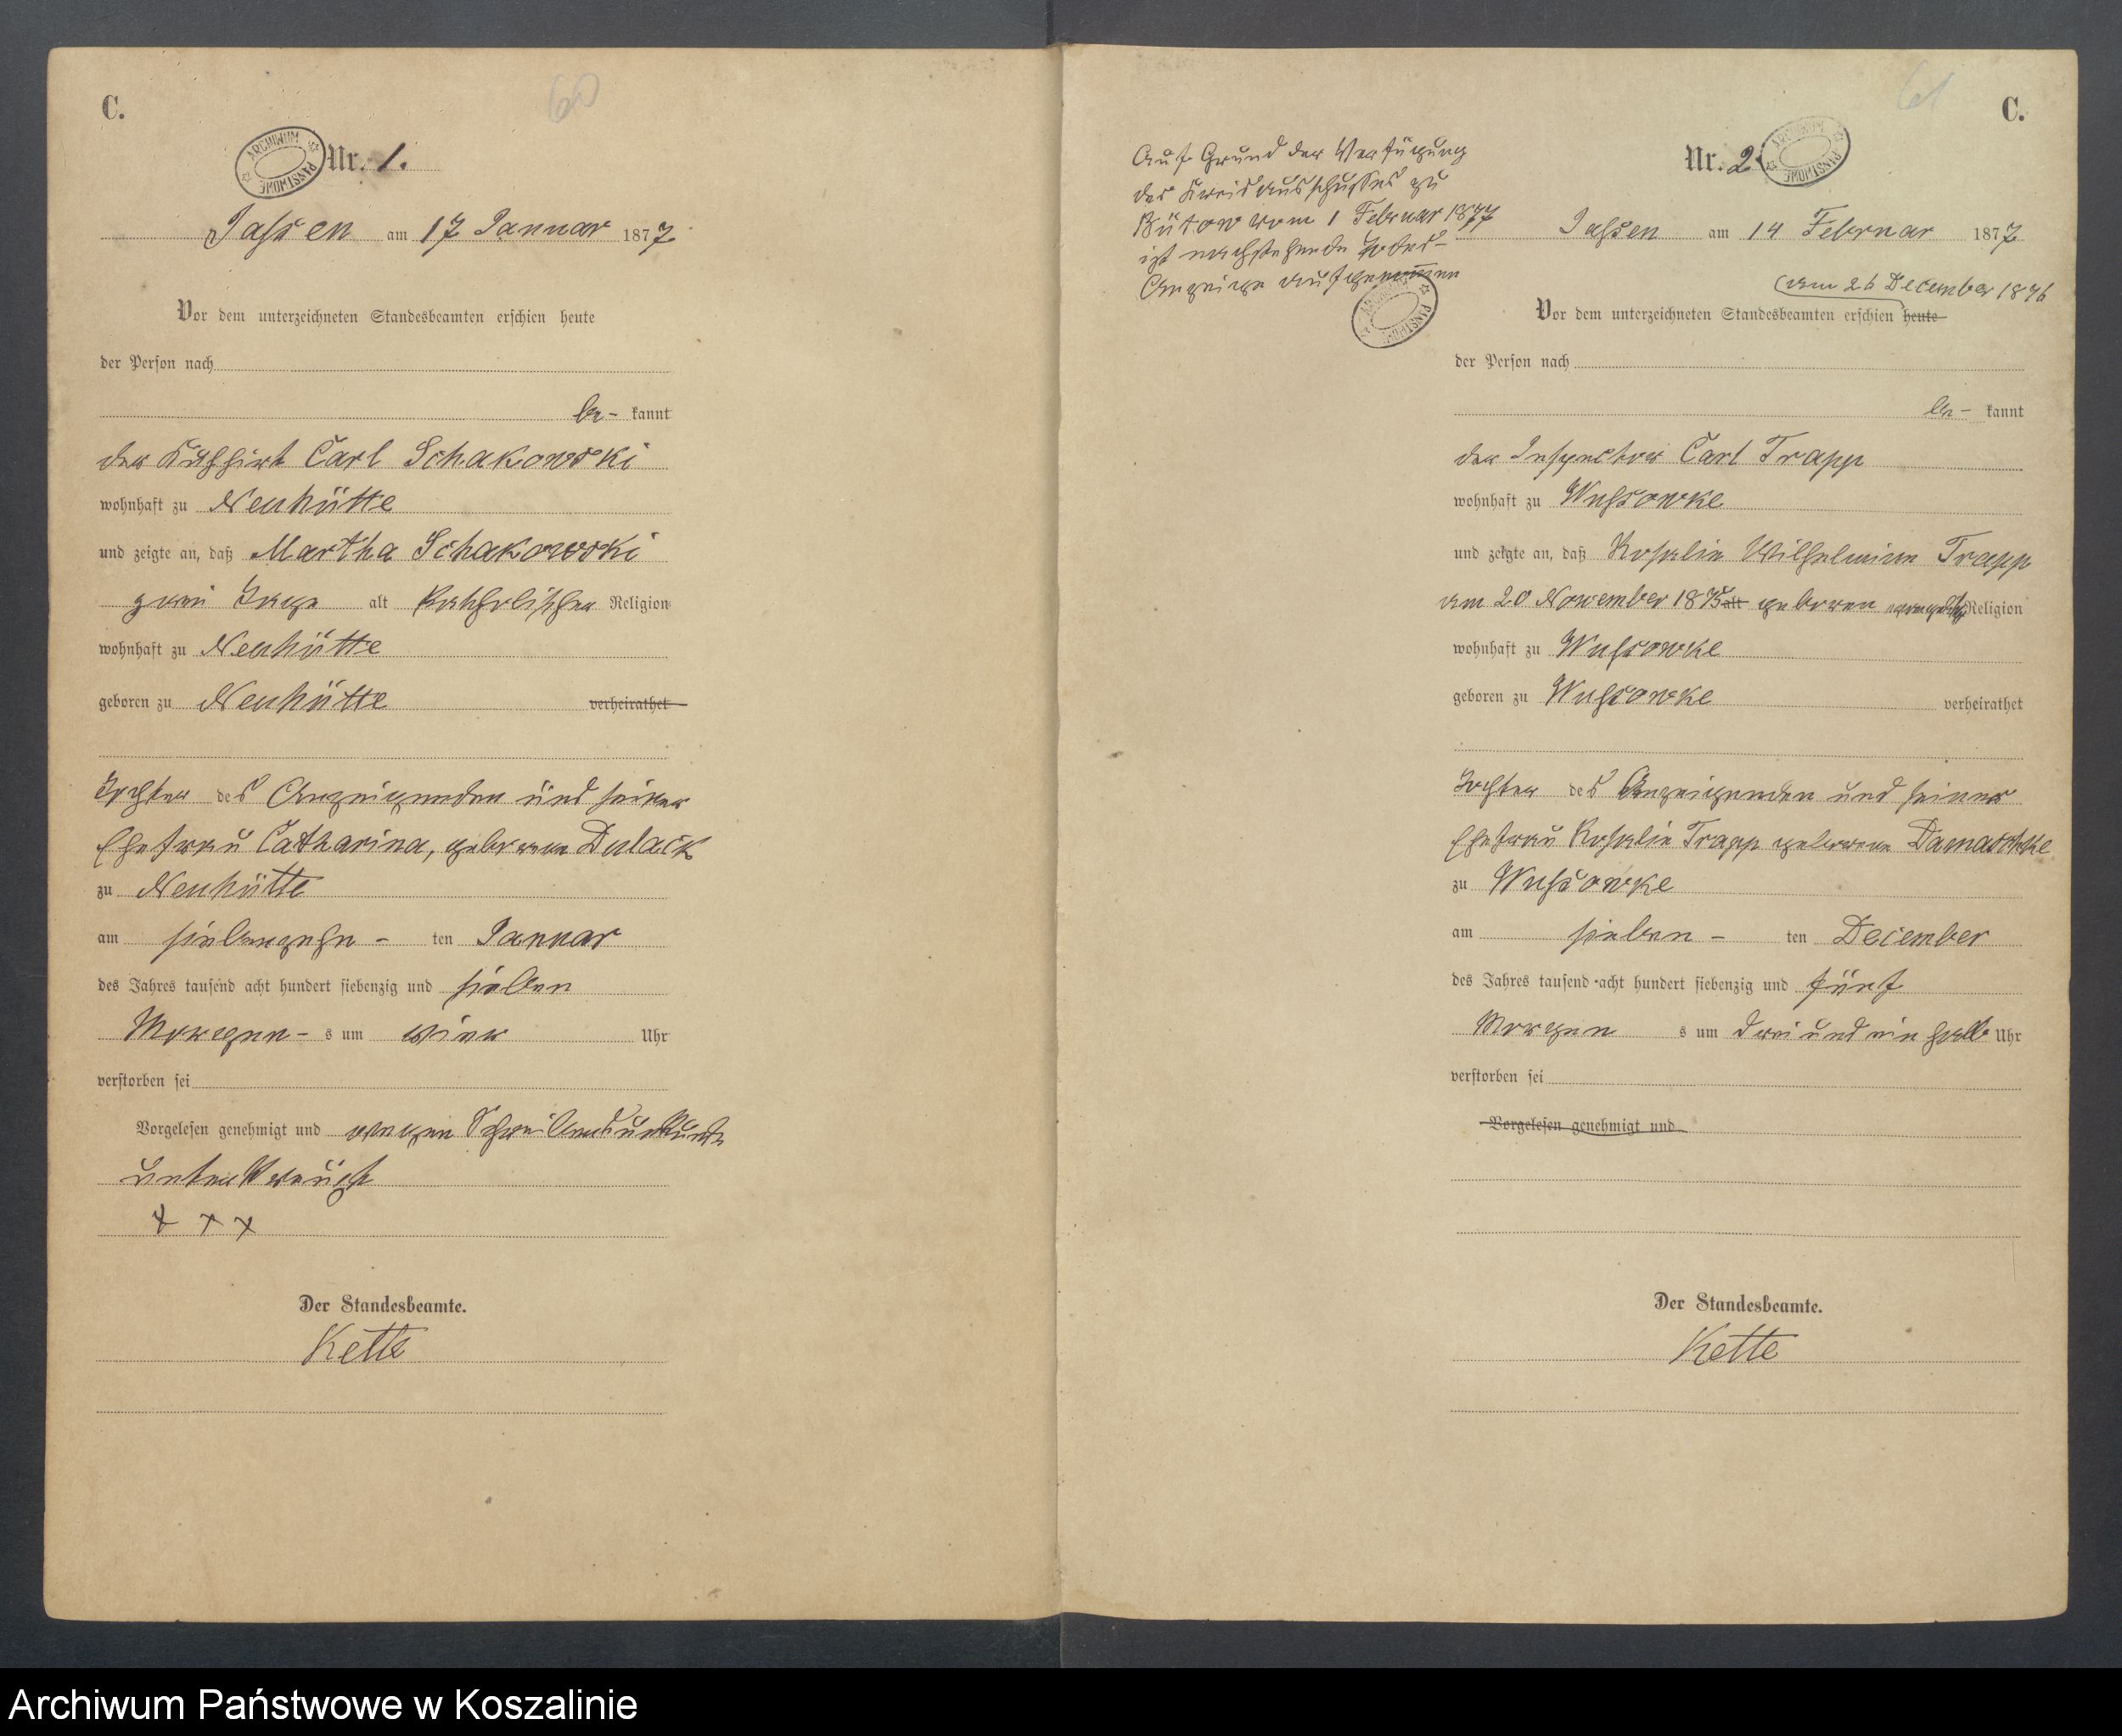 C.
60
ARCHIWUM PAŃSTWOWE
Nr. 1.
Jassen am 17 Januar 1877.
Vor dem unterzeichneten Standesbeamten erschien heute
der Person nach
be- kannt
der Kuhhirt Carl Schakowski
wohnhaft zu Neuhütte
und zeigte an, daß Martha Schakowski
zwei Tage alt katholischer Religion
wohnhaft zu Neuhütte
geboren zu Neuhütte verheirathet
Tochter des Anzeigenden und seiner
Ehefrau Catharina, geborene Dulack
zu Neuhütte
am siebenzehn - ten Januar
des Jahres tausend acht hundert siebenzig und sieben
Morgen - s um vier Uhr
verstorben sei
Vorgelesen genehmigt und wegen Schreibensunkunde
unterkreuzt
+ + +
Der Standesbeamte.
Kette
61
C.
Nr. 2
ARCHIWUM PAŃSTWOWE
Auf Grund der Verfügung
des Kreisausschusses zu
Bütow vom 1 Februar 1877
ist nachstehende Todes-
Anzeige aufgenommen
ARCHIWUM PAŃSTWOWE
Jassen am 14 Februar 1877
am 26 December 1876
Vor dem unterzeichneten Standesbeamten erschien heute
der Person nach
be- kannt
der Inspector Carl Trapp
wohnhaft zu Wussowke
und zeigte an, daß Rosalie Wilhelmine Trapp
am 20 November 1875 alt geboren Religion
wohnhaft zu Wussowke
geboren zu Wussowke verheirathet
Tochter des Anzeigenden und seiner
Ehefrau Rosalie Trapp geborene Damaschke
zu Wussowke
am sieben - ten December
des Jahres tausend acht hundert siebenzig und fünf
Morgen s um drei und ein halb Uhr
verstorben sei
Vorgelesen genehmigt und
Der Standesbeamte.
Kette
Archiwum Państwowe w Koszalinie